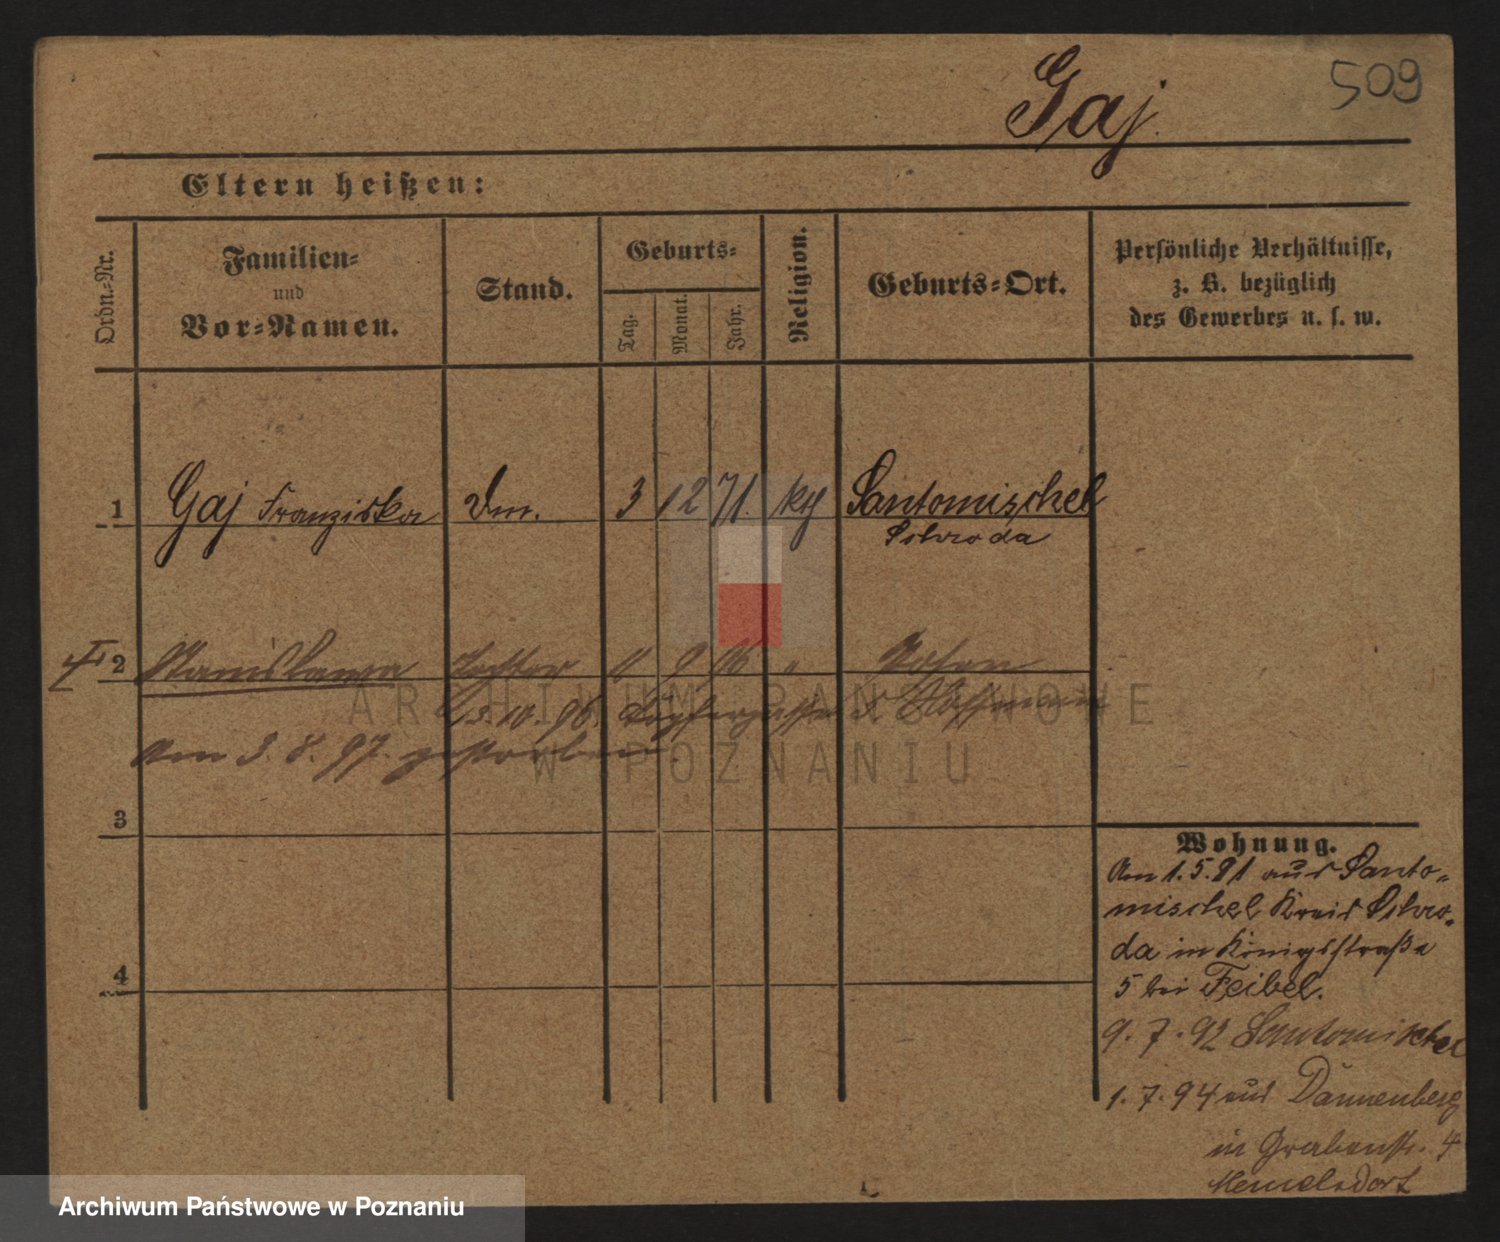 Gaj
509
Eltern heißen:
Ordn.-Nr.
Familien-
und
Vor-Namen.
Stand.
Geburts-
Tag.
Monat.
Jahr.
Religion.
Geburts-Ort.
Persönliche Verhältnisse,
z. B. bezüglich
des Gewerbes u. s. w.
1 Gaj Franziska Dm. 3 12 71. kth Santomischel
Schroda
2 Stanislawa Tochter 11 9 96 " Posen
13.10.96. Töpfergasse
Am 3.8.97. gestorben.
3
4
Wohnung.
Am 1.5.91 aus Santo-
mischel Kreis Schro-
da in Königsstraße
5 bei Feibel.
9.7.92 Santomischel
1.7.94 aus Dannenberg
in Grabenstr. 4
ARCHIWUM PAŃSTWOWE
W POZNANIU
Archiwum Państwowe w Poznaniu